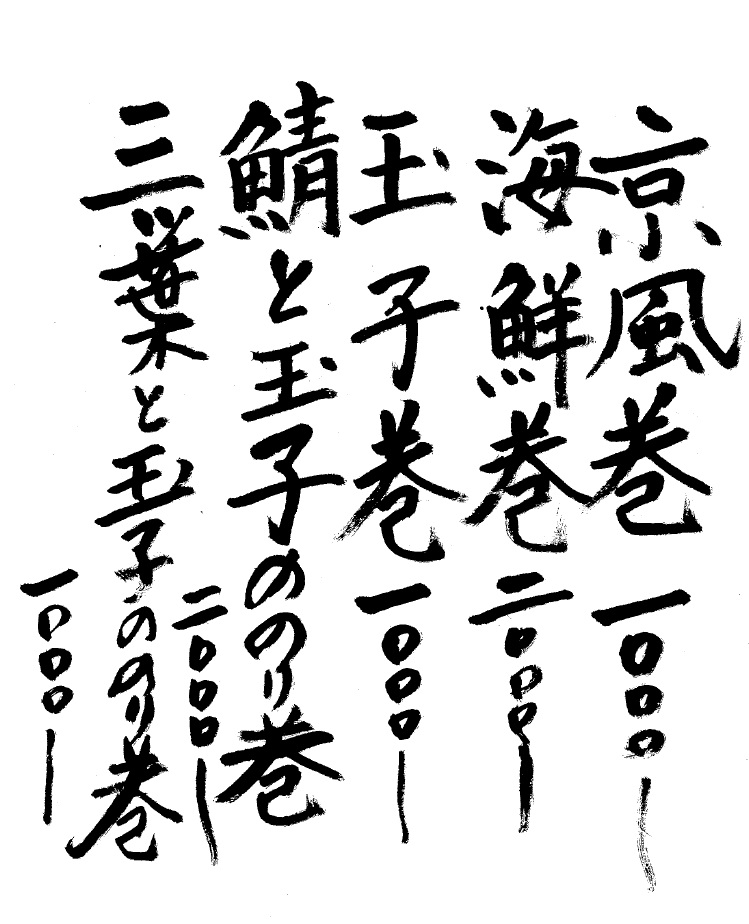 京風巻 一〇〇〇
海鮮巻 二〇〇〇
玉子巻 一〇〇〇
鯖と玉子ののり巻 二〇〇〇
三葉と玉子ののり巻 一〇〇〇